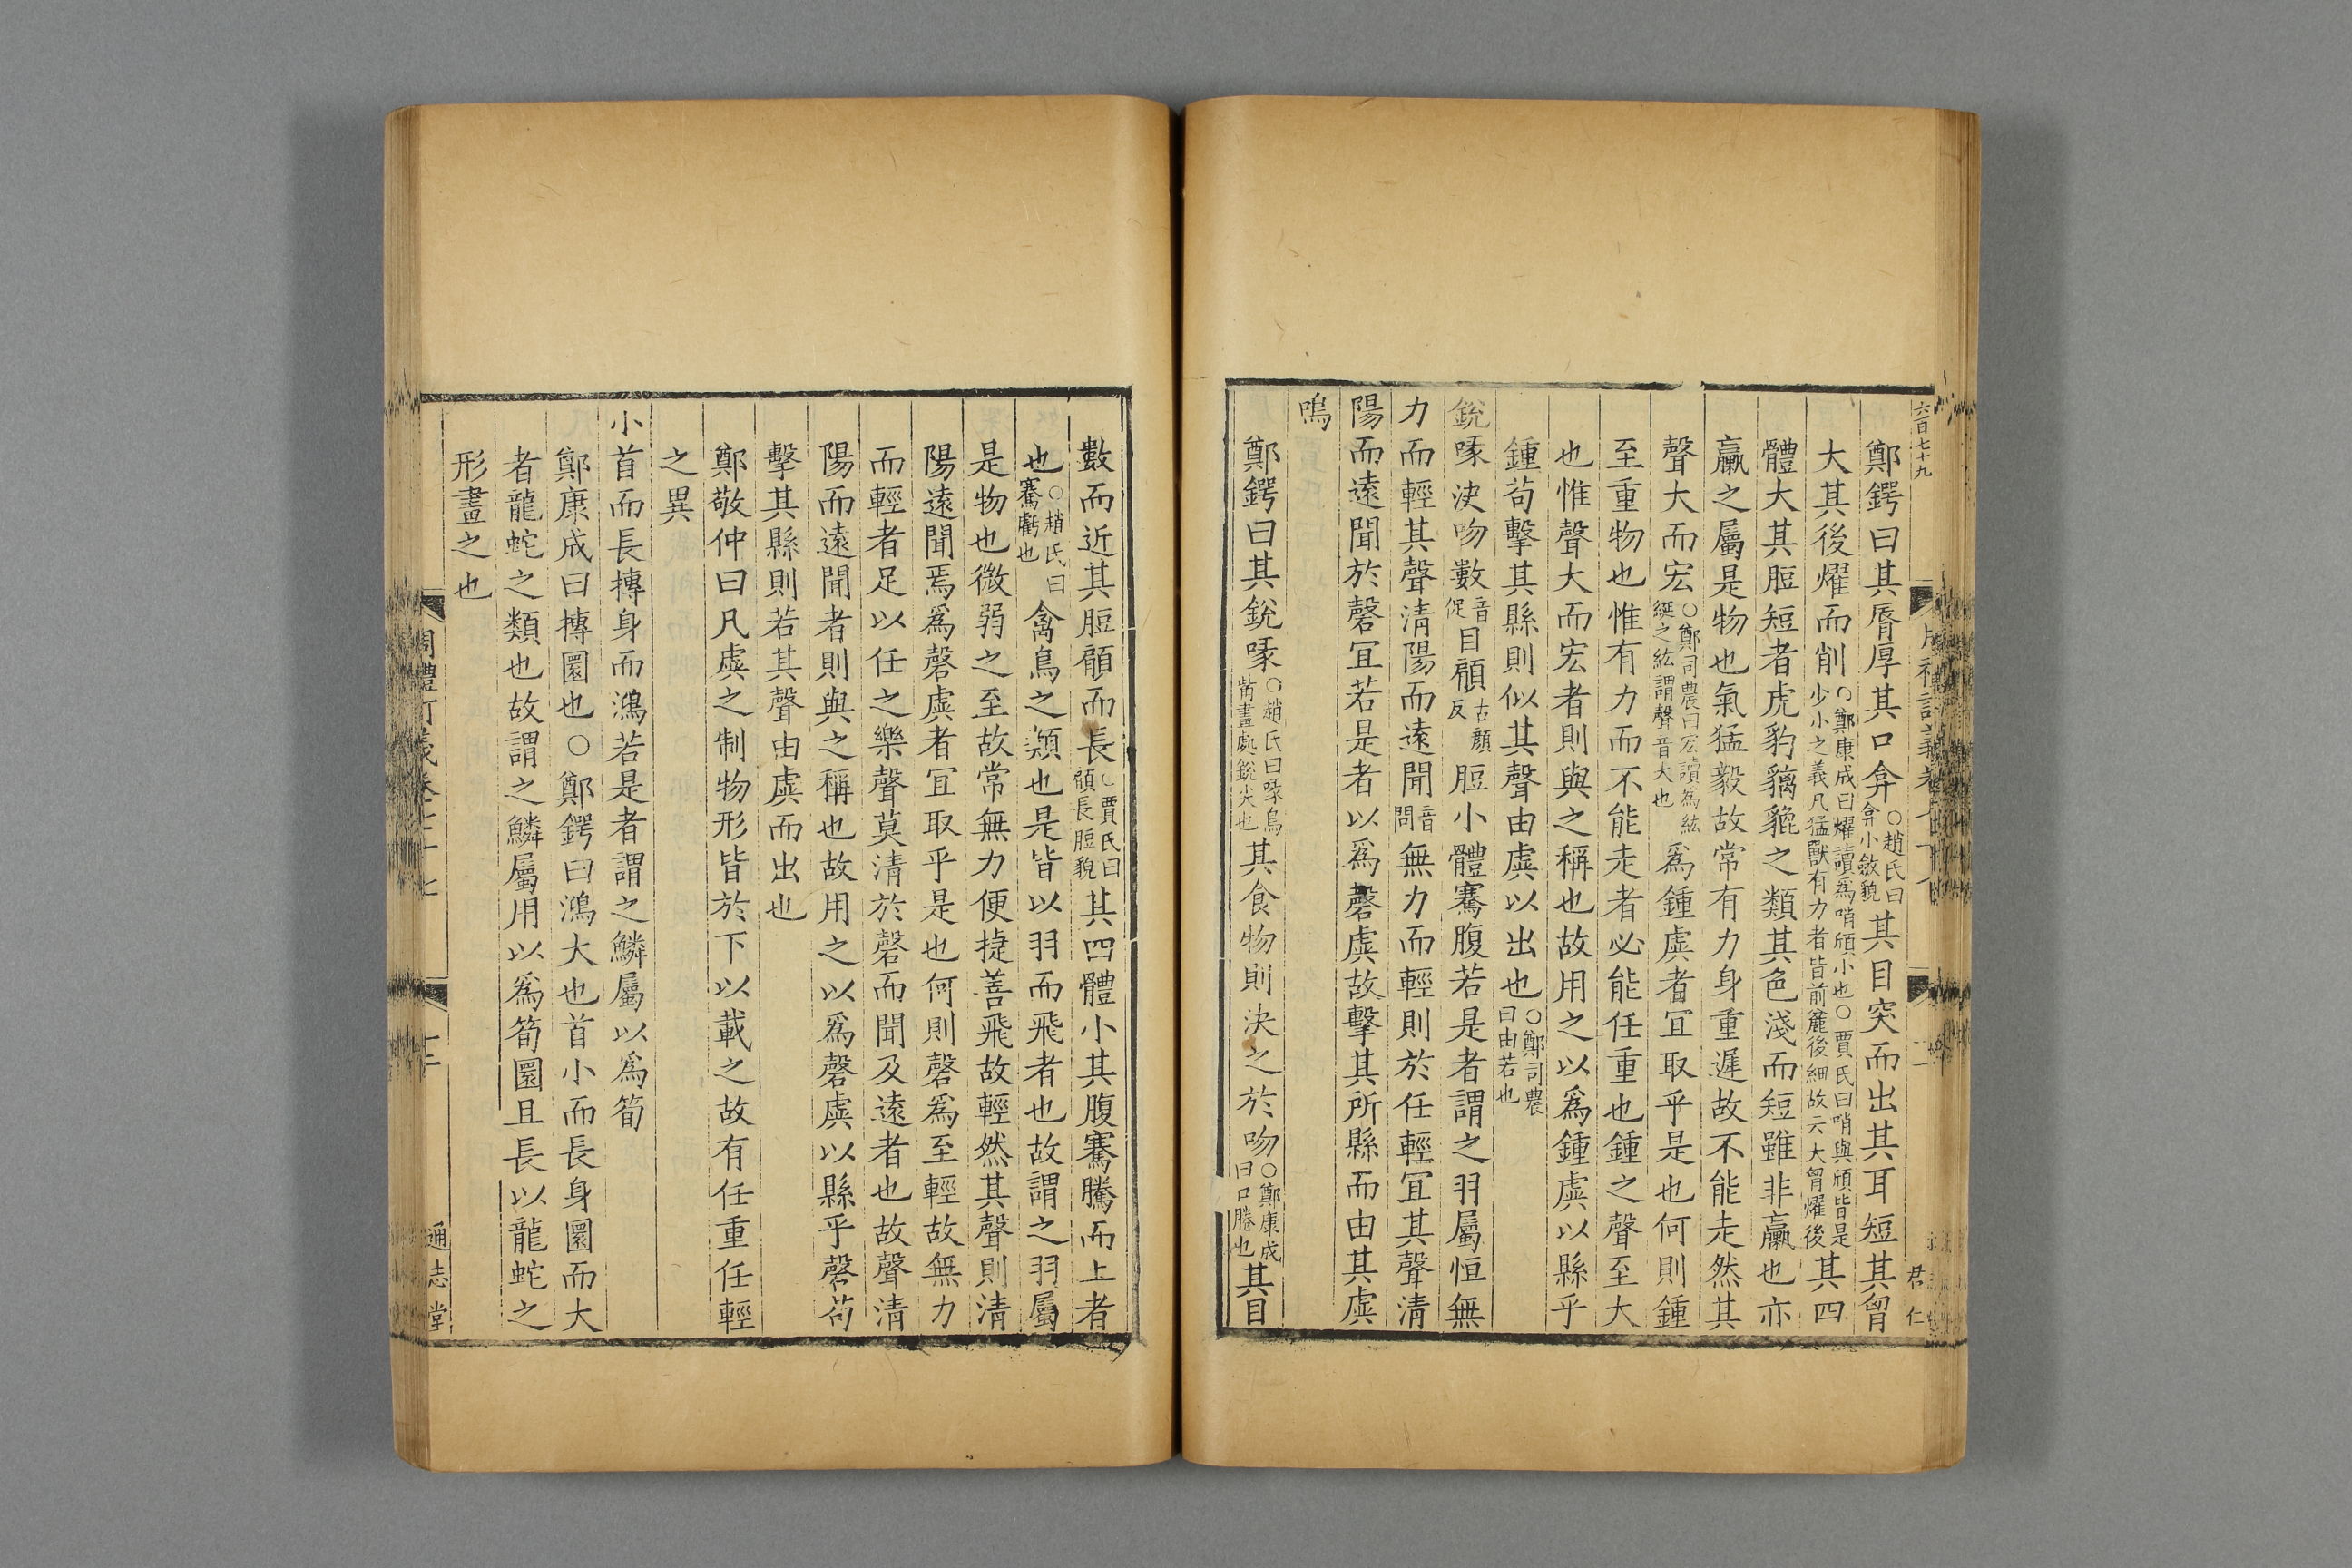 六百七十九
鄭鍔曰其脣厚其口弇○趙氏曰弇小斂貌其目突而出其耳短其胷
大其後燿而削○鄭康成曰燿讀為哨頎小也○賈氏曰哨與頎皆是少小之義凡猛獸有力者皆前麄後細故云大胷燿後其四
體大其脰短者虎豹貔貙之類其色淺而短雖非臝也亦
臝之屬是物也氣猛毅故常有力身重遲故不能走然其
聲大而宏○鄭司農曰宏讀為紘綖之紘謂聲音大也為鍾虡者宜取乎是也何則鍾
至重物也惟有力而不能走者必能任重也鍾之聲至大
也惟聲大而宏者則與之稱也故用之以為鍾虡以縣乎
鍾茍擊其縣則似其聲由虡以出也○鄭司農曰由若也
銳喙決吻數音促目顅古顏反脰小體騫腹若是者謂之羽屬恒無
力而輕其聲清陽而遠聞音問無力而輕則於任輕宜其聲清
陽而遠聞於磬宜若是者以為磬虡故擊其所縣而由其虡
鳴
鄭鍔曰其銳喙○趙氏曰喙鳥觜盡處銳尖也其食物則決之於吻○鄭康成曰口腃也其目
數而近其脰顅而長○賈氏曰顅長脰貌其四體小其腹騫騰而上者
也○趙氏曰騫虧也禽鳥之類也是皆以羽而飛者也故謂之羽屬
是物也微弱之至故常無力便捷善飛故輕然其聲則清
陽遠聞焉為磬虡者宜取乎是也何則磬為至輕故無力
而輕者足以任之樂聲莫清於磬而聞及遠者也故聲清
陽而遠聞者則與之稱也故用之以為磬虡以縣乎磬茍
擊其縣則若其聲由虡而出也
鄭敬仲曰凡虡之制物形皆於下以載之故有任重任輕
之異
小首而長摶身而鴻若是者謂之鱗屬以為筍
鄭康成曰摶圜也○鄭鍔曰鴻大也首小而長身圜而大
者龍蛇之類也故謂之鱗屬用以為筍圜且長以龍蛇之
形畫之也
通志堂
君仁